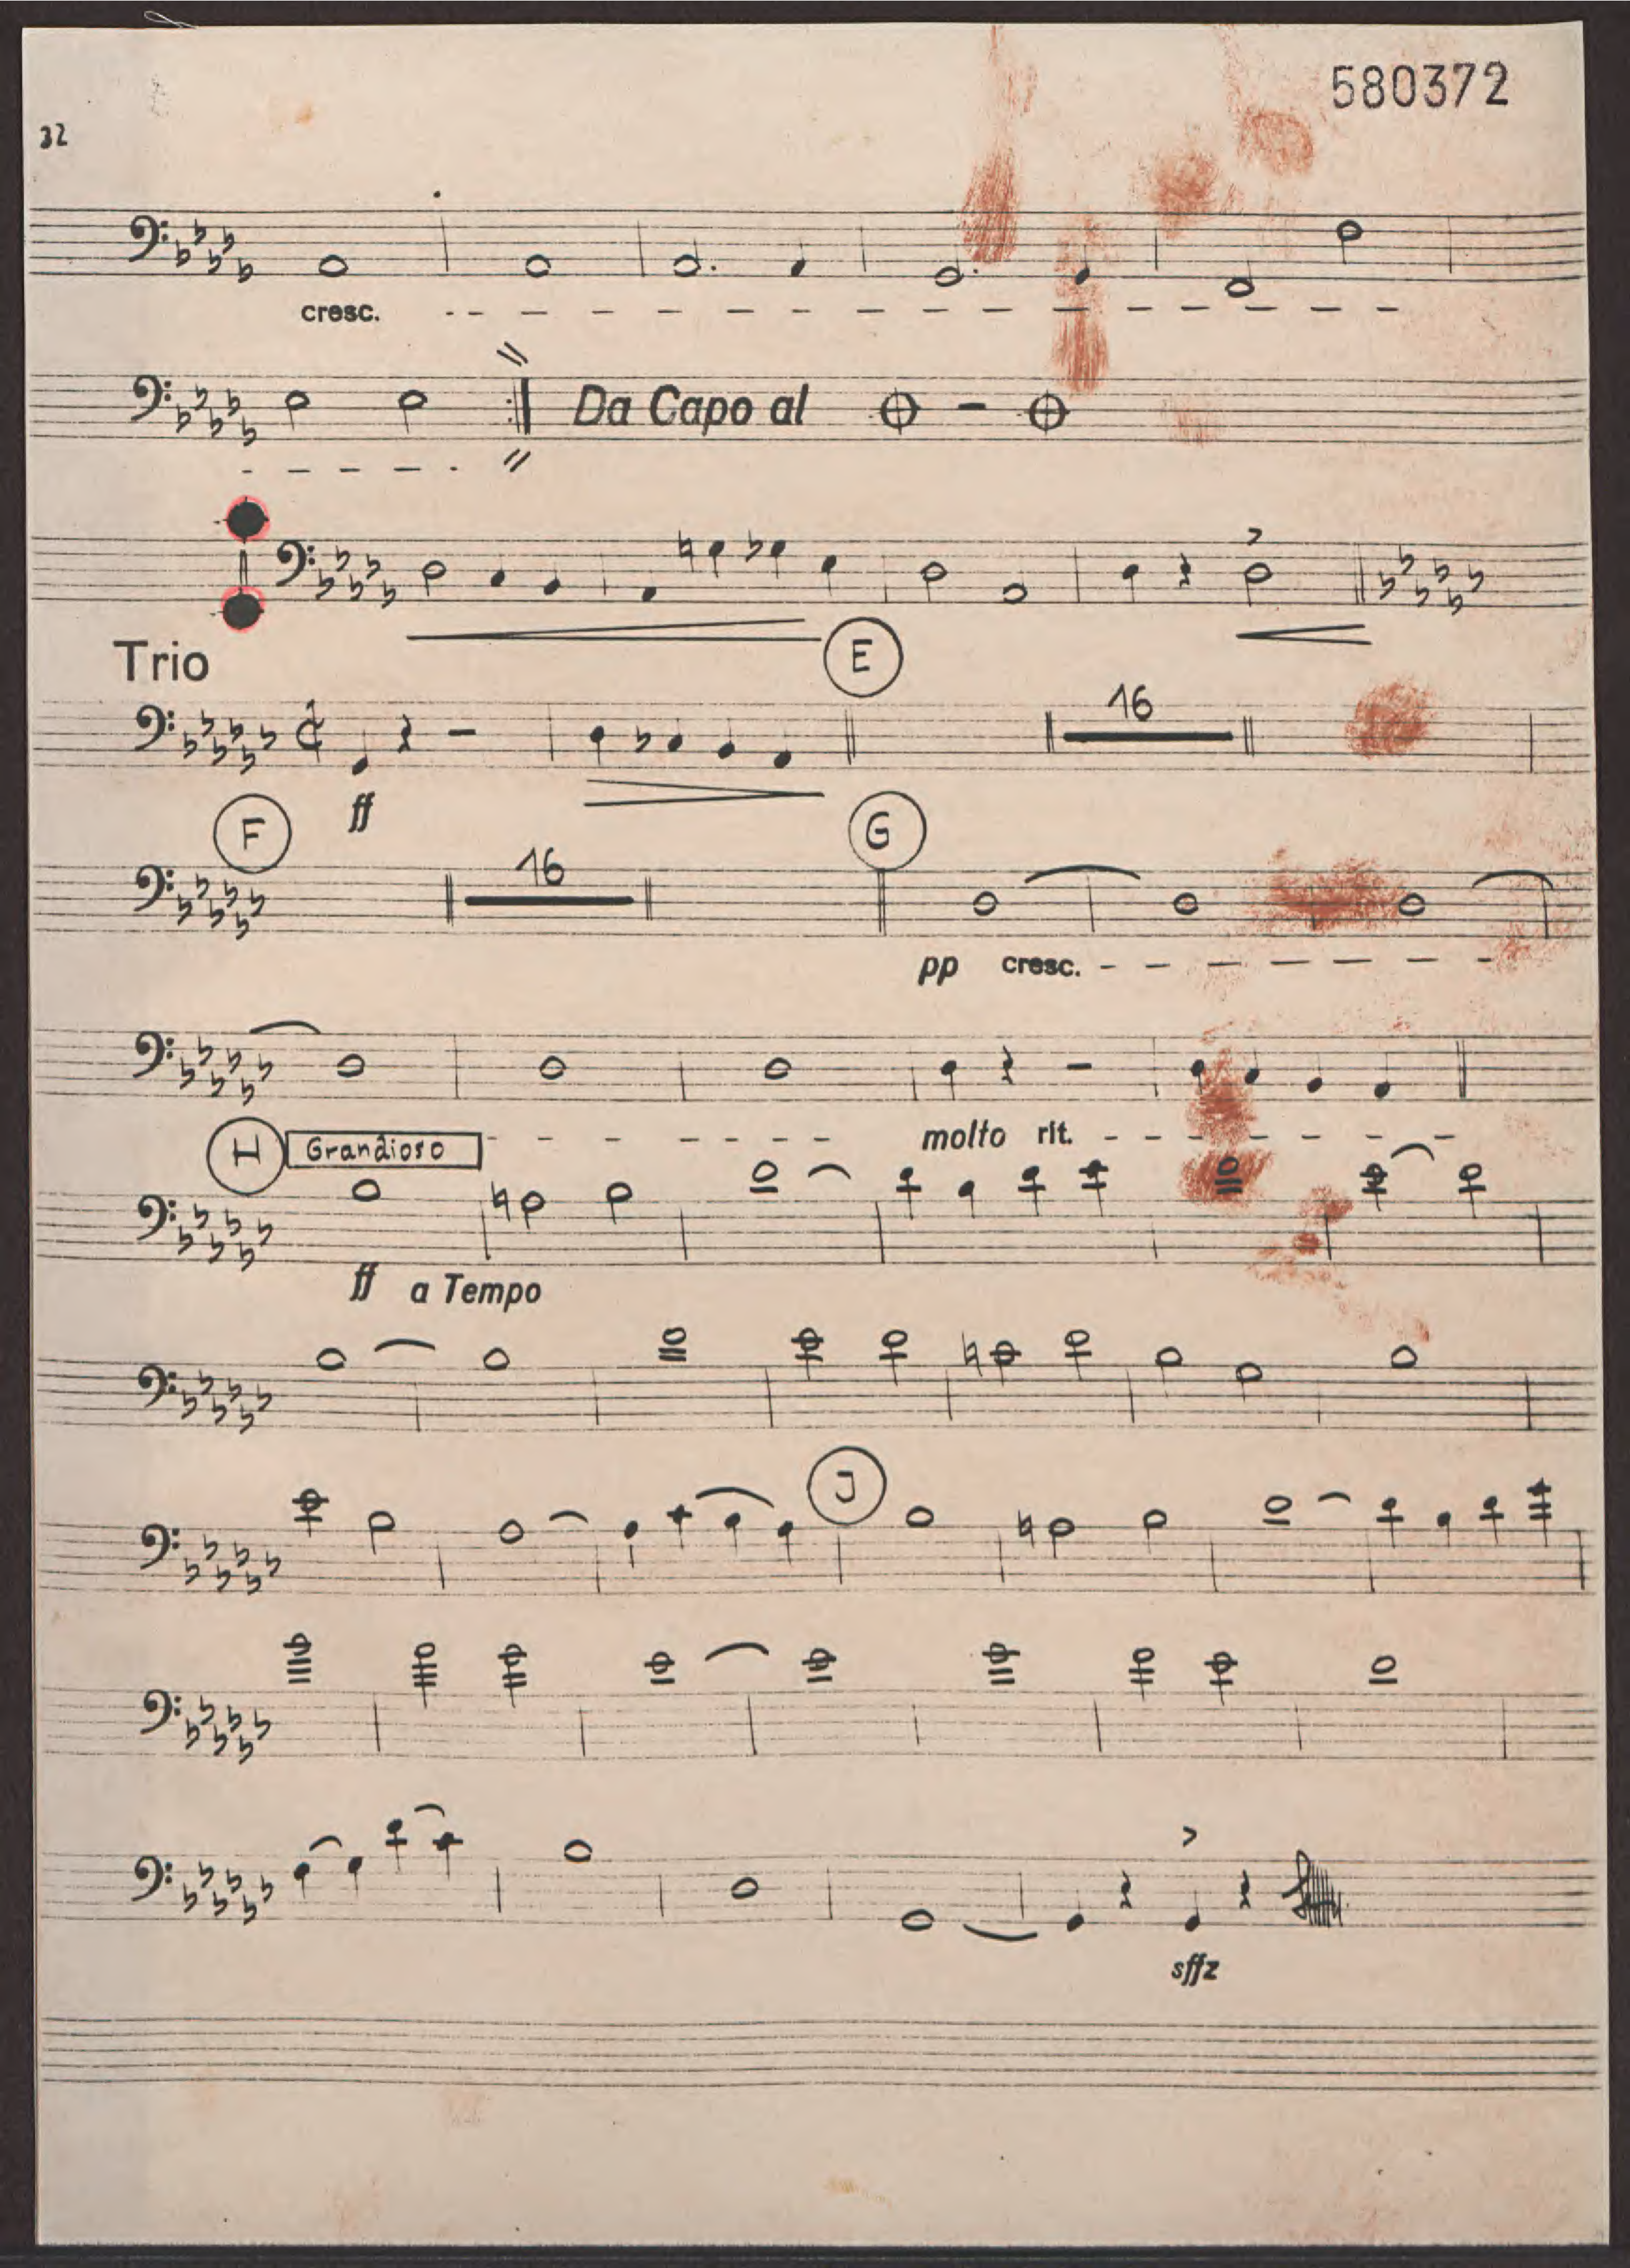 580372
32
cresc.
Da Capo al
Trio
E
16
ff
F
16
G
pp cresc.
molto rit.
H Grandioso
ff a Tempo
J
sffz